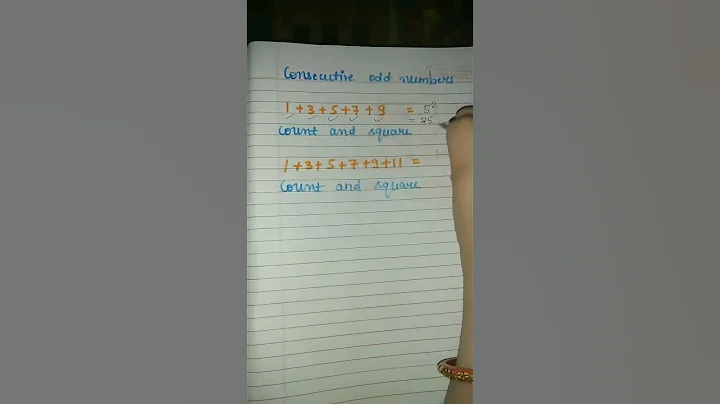 Consecutive odd numbers
1+3+5+7+9 = 5²
= 25
count and square
1+3+5+7+9+11 =
count and square